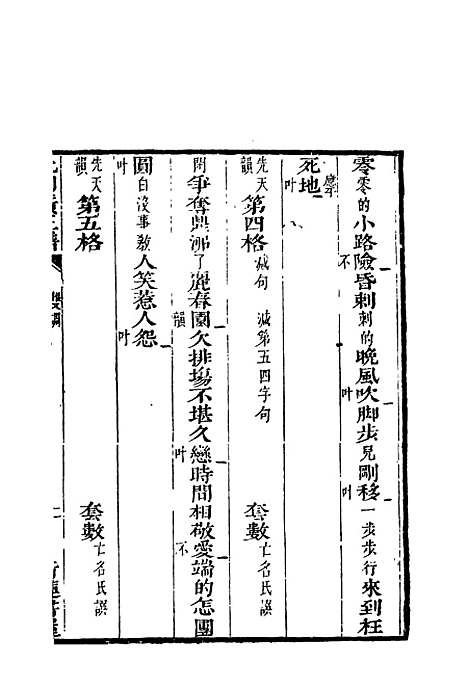 零零的小路險不昏剌剌的晚風吹叶脚步兒剛移叶一步步行來到枉
死地叶
先天韻第四格減句 減第五四字句 套數亡名氏譔
鬧爭奪興沸了麗春園韻欠排場不堪久戀叶時間相敬愛不端的怎團
圓叶白沒事教人笑惹人怨叶
先天韻第五格 套數亡名氏譔
二